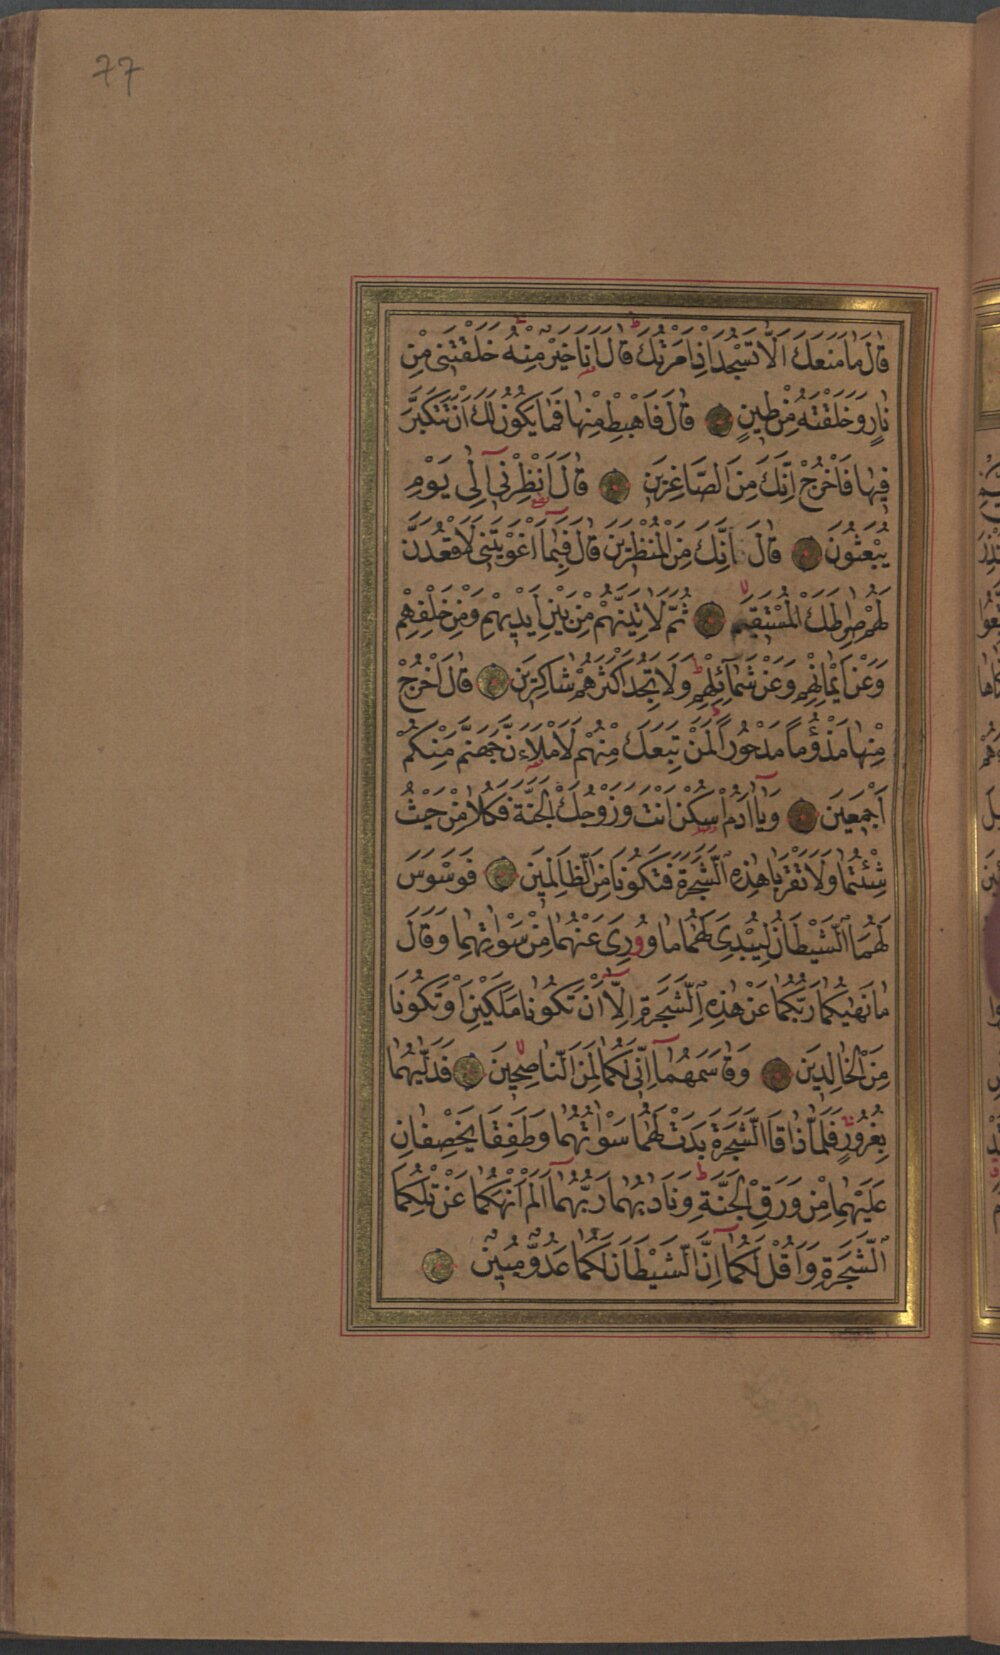 77
قَالَ مَا مَنَعَكَ اَلَّا تَسْجُدَ اِذْ اَمَرْتُكَ قَالَ اَنَا خَيْرٌ مِنْهُ خَلَقْتَنِى مِنْ
نَارٍ وَخَلَقْتَهُ مِنْ طِينٍ قَالَ فَاهْبِطْ مِنْهَا فَمَا يَكُونُ لَكَ اَنْ تَتَكَبَّرَ
فِيهَا فَاخْرُجْ اِنَّكَ مِنَ الصَّاغِرِينَ قَالَ اَنْظِرْنِى اِلٰى يَوْمِ
يُبْعَثُونَ قَالَ اِنَّكَ مِنَ الْمُنْظَرِينَ قَالَ فَبِمَا اَغْوَيْتَنِى لَاَقْعُدَنَّ
لَهُمْ صِرَاطَكَ الْمُسْتَقِيمَ ثُمَّ لَاٰتِيَنَّهُمْ مِنْ بَيْنِ اَيْدِيهِمْ وَمِنْ خَلْفِهِمْ
وَعَنْ اَيْمَانِهِمْ وَعَنْ شَمَآئِلِهِمْ وَلَا تَجِدُ اَكْثَرَهُمْ شَاكِرِينَ قَالَ اخْرُجْ
مِنْهَا مَذْؤُمًا مَدْحُورًا لَمَنْ تَبِعَكَ مِنْهُمْ لَاَمْلَاَنَّ جَهَنَّمَ مِنْكُمْ
اَجْمَعِينَ وَيَآ اٰدَمُ اسْكُنْ اَنْتَ وَزَوْجُكَ الْجَنَّةَ فَكُلَا مِنْ حَيْثُ
شِئْتُمَا وَلَا تَقْرَبَا هٰذِهِ الشَّجَرَةَ فَتَكُونَا مِنَ الظَّالِمِينَ فَوَسْوَسَ
لَهُمَا الشَّيْطَانُ لِيُبْدِىَ لَهُمَا مَا وُورِىَ عَنْهُمَا مِنْ سَوْاٰتِهِمَا وَقَالَ
مَا نَهٰيكُمَا رَبُّكُمَا عَنْ هٰذِهِ الشَّجَرَةِ اِلَّآ اَنْ تَكُونَا مَلَكَيْنِ اَوْ تَكُونَا
مِنَ الْخَالِدِينَ وَقَاسَمَهُمَآ اِنِّى لَكُمَا لَمِنَ النَّاصِحِينَ فَدَلّٰيهُمَا
بِغُرُورٍ فَلَمَّا ذَاقَا الشَّجَرَةَ بَدَتْ لَهُمَا سَوْاٰتُهُمَا وَطَفِقَا يَخْصِفَانِ
عَلَيْهِمَا مِنْ وَرَقِ الْجَنَّةِ وَنَادٰيهُمَا رَبُّهُمَآ اَلَمْ اَنْهَكُمَا عَنْ تِلْكُمَا
الشَّجَرَةِ وَاَقُلْ لَكُمَآ اِنَّ الشَّيْطَانَ لَكُمَا عَدُوٌّ مُبِينٌ